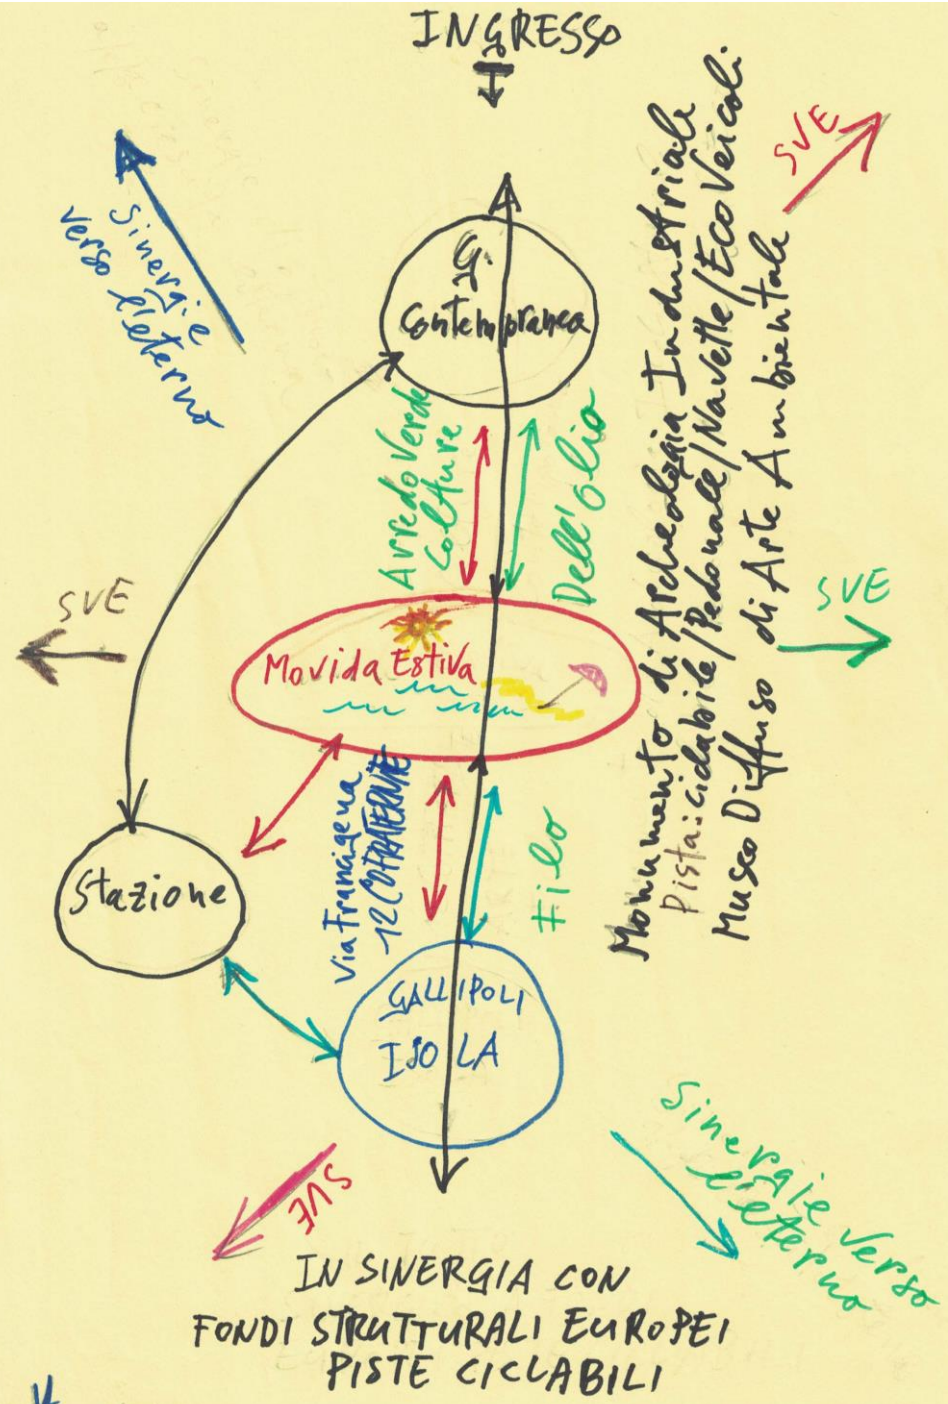 INGRESSO
SVE
Sinergie
verso l'eterno
G.
Contemporanea
Arredo Verde
Colture
Dell'olio
Monumento di Archeologia Industriale
Pista: ciclabile/Pedonale/Navette/Eco Veicoli
Museo Diffuso di Arte Ambientale
SVE
SVE
Movida Estiva
Via Francigena
12 COFRATERNITE
Filo
Stazione
GALLIPOLI
ISOLA
SVE
Sinergie verso
l'eterno
IN SINERGIA CON
FONDI STRUTTURALI EUROPEI
PISTE CICLABILI